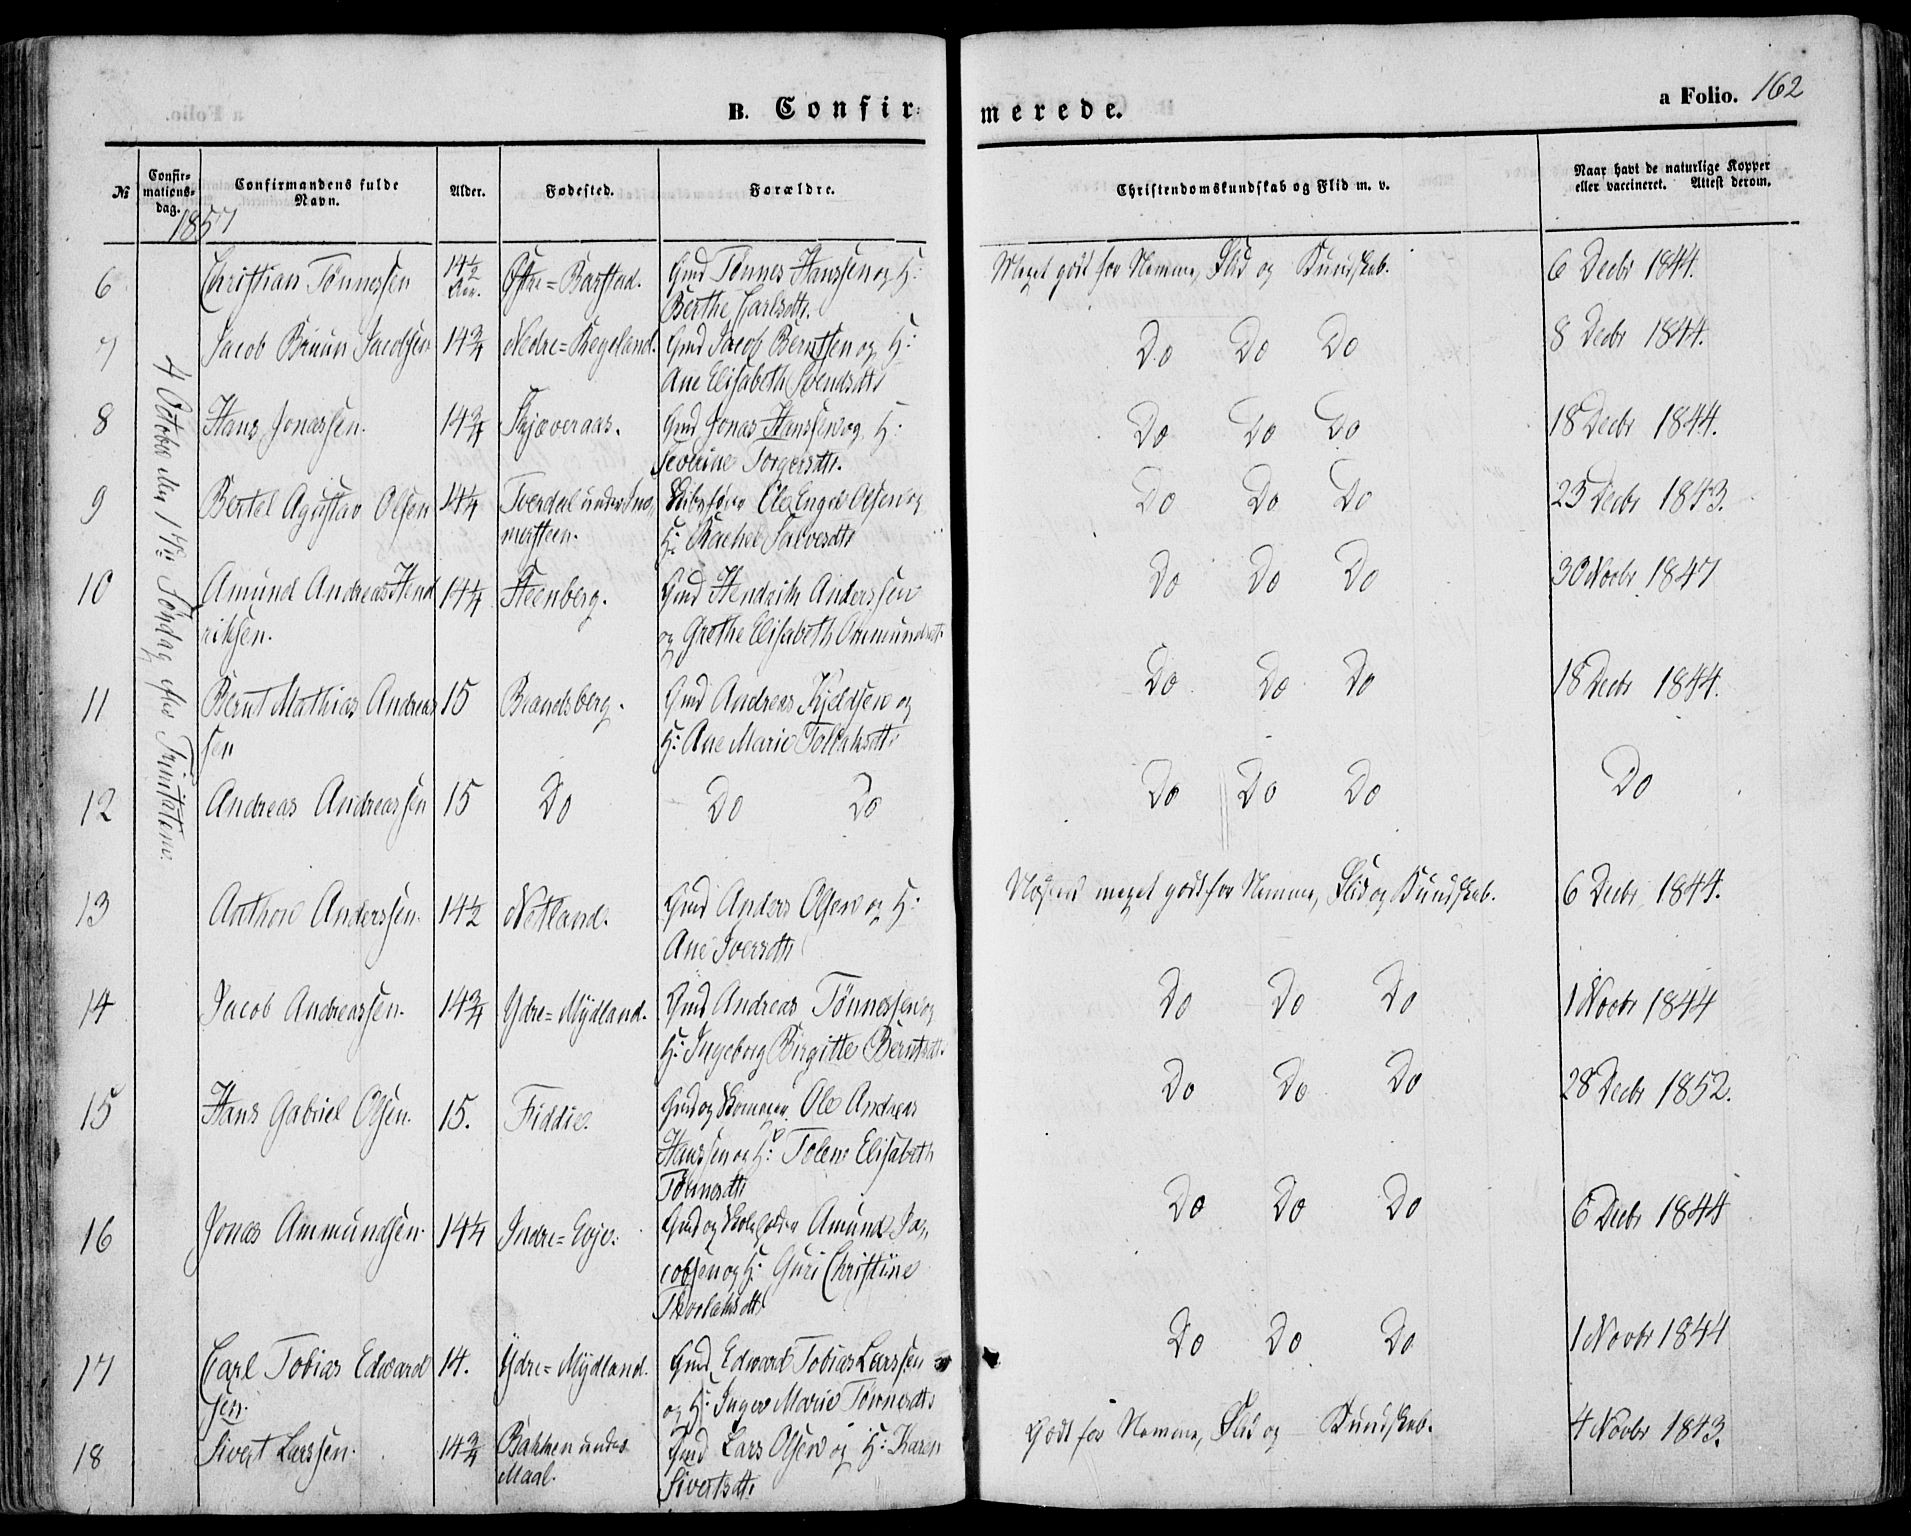 B. Confir-
merede.
a Folio. 162
No
Confir-
mations-
dag.
Confirmandens fulde
Navn.
Alder.
Fødested.
Forældre.
Christendomskundskab og Flid m. v.
Naar havt de naturlige Kopper
eller vaccineret. Attest derom.
1857
4 October den 17de Søndag efter Trinitatem.
6 Christian Tønnessen 14½ Aar. Østre=Barstad. Gmd Tønnes Hanssen og H: Meget godt for Nemme, Flid og Kundskab. 6 Decbr 1844.
Berthe Carlsdtr.
7 Jacob Bruun Jacobsen 14¾ Nedre=Regeland. Gmd Jacob Berntsen og H: Do Do Do 8 Decbr 1844.
Ane Elisabeth Svendsdtr
8 Hans Jonassen. 14¾ Skjæveraas. Gmd Jonas Hanssen og H: Do Do Do 18 Decbr 1844.
Severine Torgersdtr.
9 Bertel Agustav Olsen 14¼ Tverdal under Ole Enger Olsen og Do Do Do 25 Decbr 1843.
mersteen. H: Rachel Salvesdtr
10 Amund Andreas Hend 14¼ Steenberg. Gmd Hendrik Anderssen Do Do Do 30 Novbr 1847
riksen. og Grethe Elisabeth Ommundsdtr.
11 Bernt Mathias Andreas 15 Brandsberg. Gmd Andreas Kjeldsen og Do Do Do 18 Decbr 1844.
sen H: Ane Marie Tollaksdtr
12 Andreas Andreassen 15 Do Do Do Do Do Do Do
13 Anthon Anderssen. 14½ Netland. Gmd Anders Olsen og H: Næsten meget godt for Nemme, Flid og Kundskab. 6 Decbr 1844.
Ane Iversdtr
14 Jacob Andreassen. 14¾ Ydre=Mydland. Gmd Andreas Tønnessen og Do Do Do 1 Novbr 1844
H: Ingeborg Birgitte Berntsdtr.
15 Hans Gabriel Olsen. 15. Fiddie. Gmd og Ole Andreas Do Do Do 28 Decbr 1852.
Hanssen og H: Tolene Elisabeth
Tønnesdtr
16 Jonas Ammundsen. 14¼ Indre=Eoje. Gmd og Skoleholder Amund Ja- Do Do Do 6 Decbr 1844
cobsen og H: Guri Christine
Thorlaksdtr
17 Carl Tobias Edward 14. Ydre=Mydland. Gmd Edward Tobias Larssen Do Do Do 1 Novbr 1844
sen. og H: Inger Marie Tønnesdtr
18 Sivert Larssen. 14¾ Bakken under Gmd Lars Olsen og H: Karen Godt for Nemme, Flid og Kundskab. 4 Novbr 1843.
Maal. Sivertsdtr